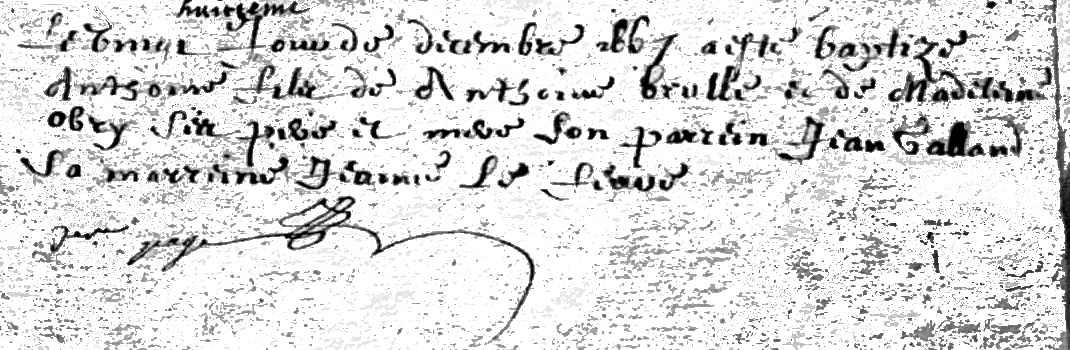 huitzeme
Le Jour de decembre 1667 a este baptize
Anthoine filz de Anthoine brulle et de Madelene
obry ses pere et mere son parrein Jean Galland
Sa marreine Jeanne Le